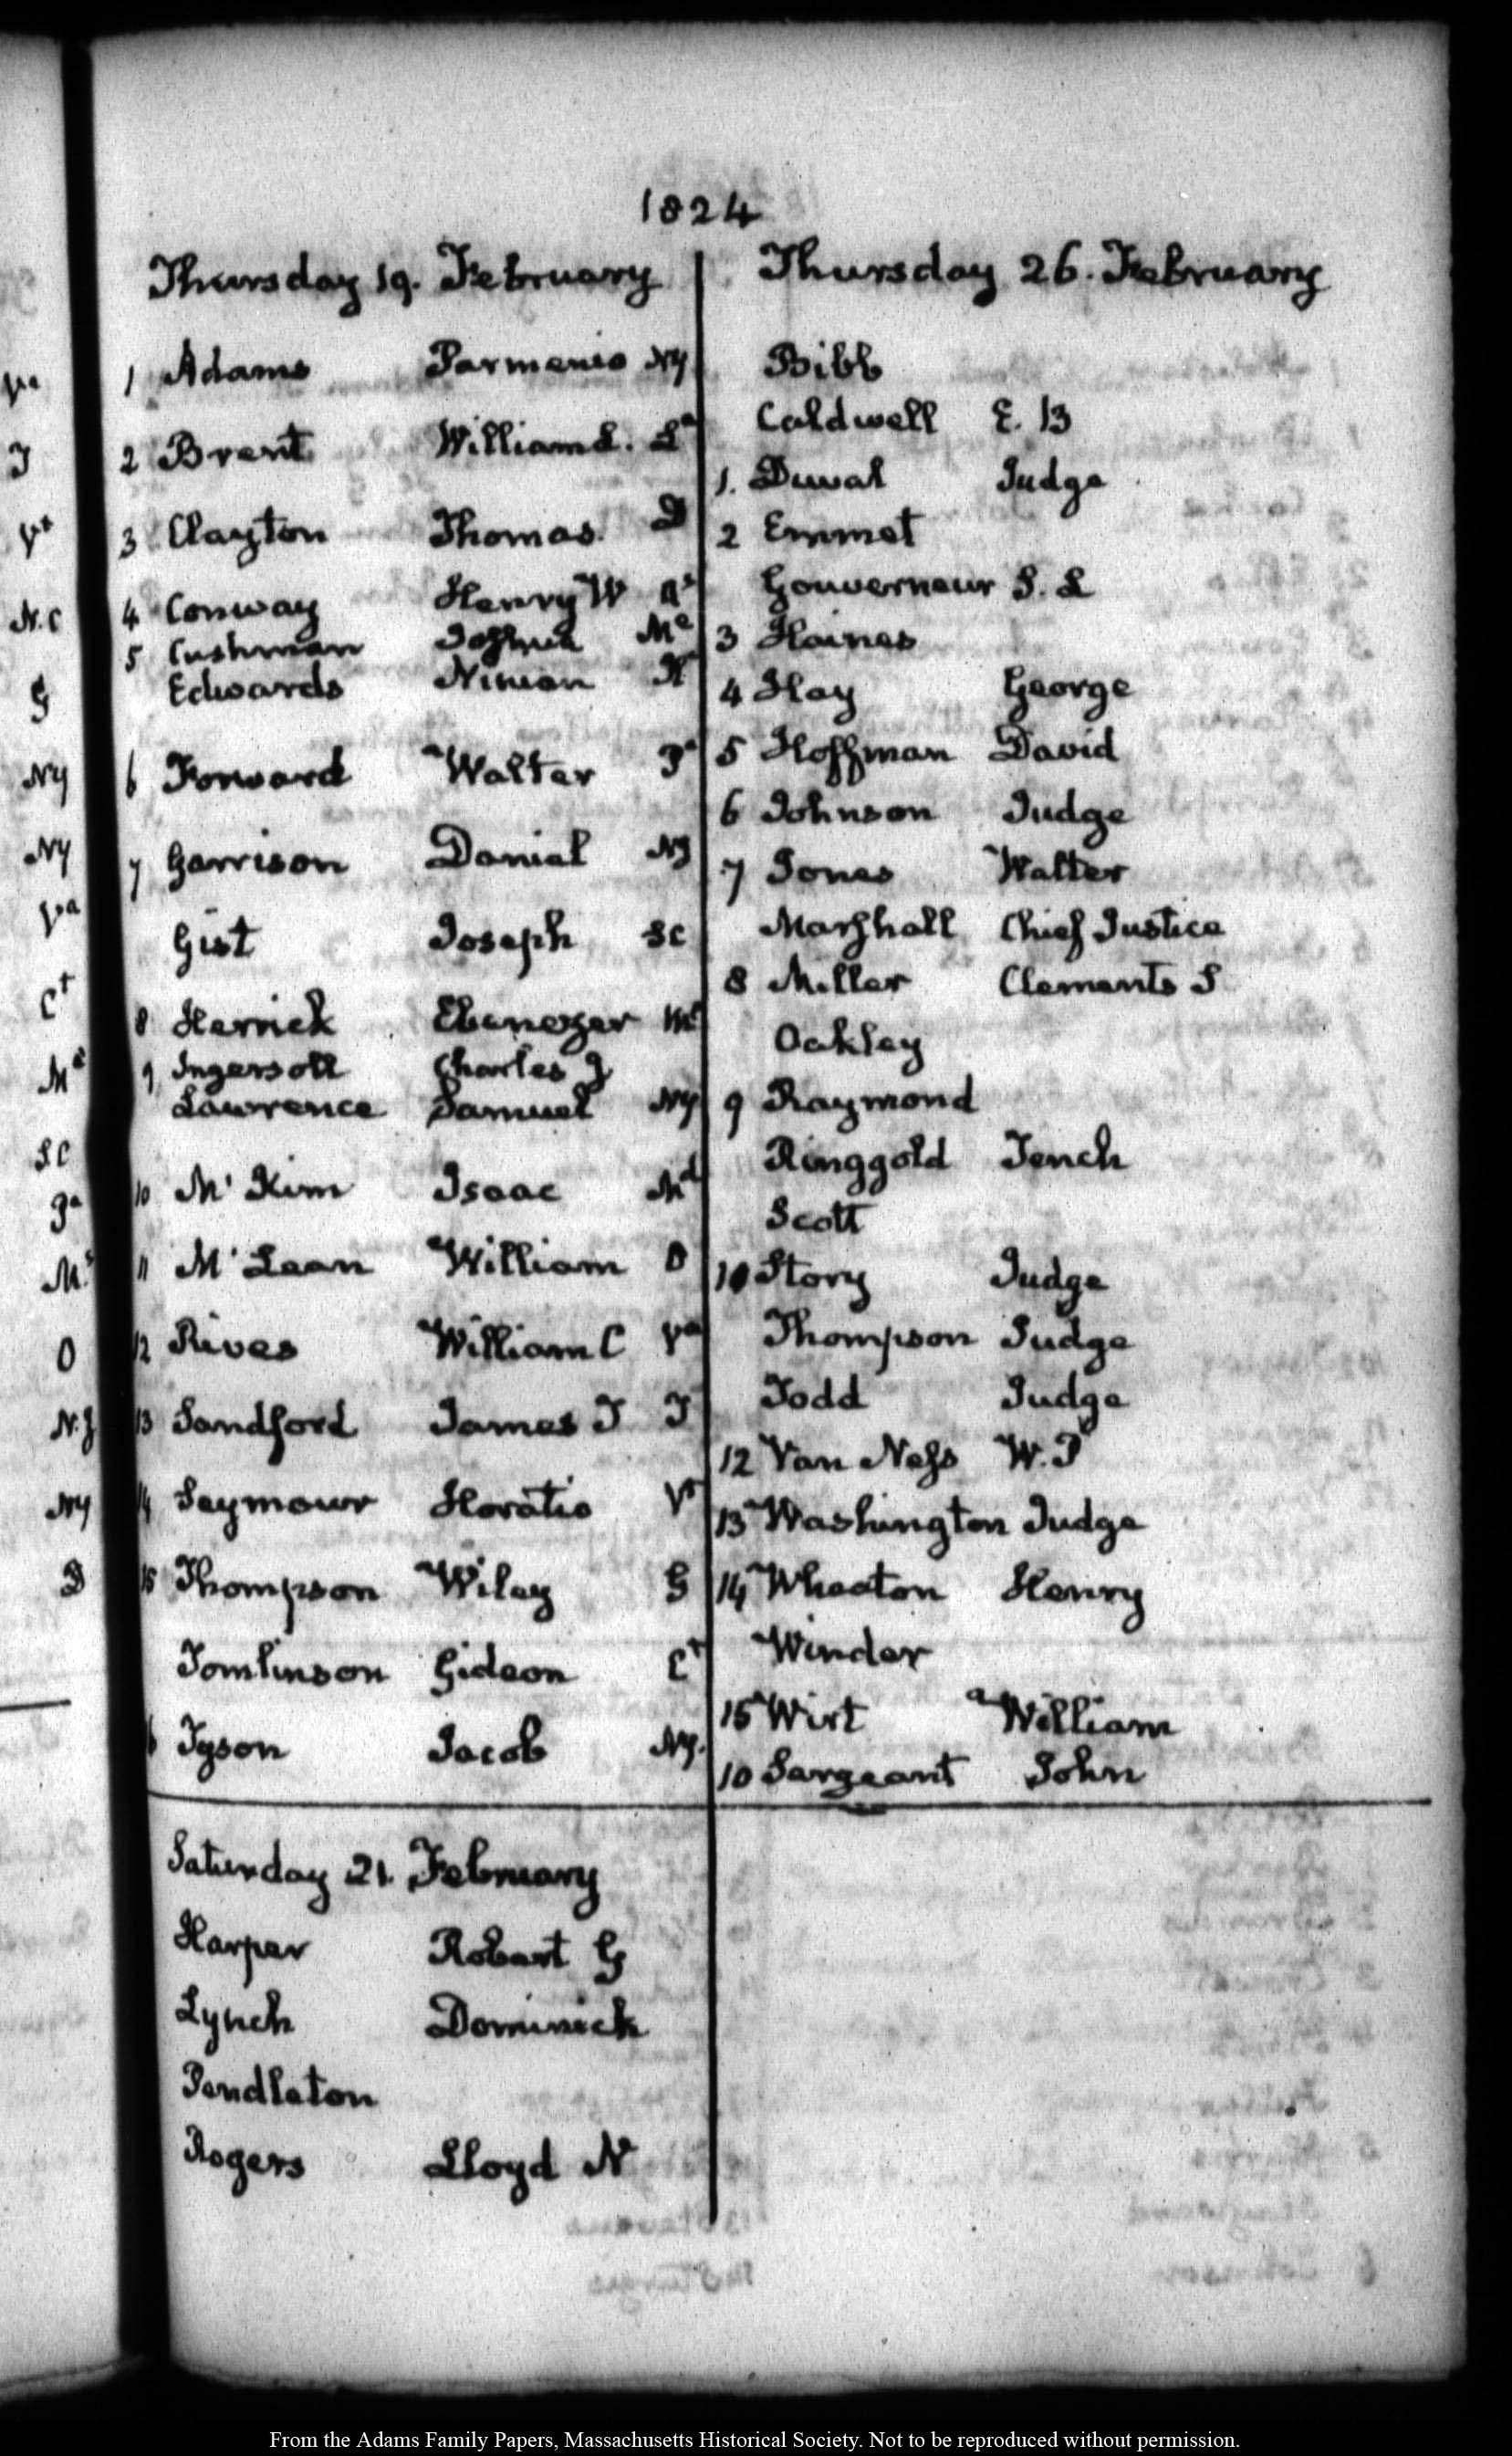 1824
Thursday 19. February
1 Adams Parmenio NY
2 Brent William L. La
3 Clayton Thomas. D
4 Conway Henry W As
5 Cushman Joshua Me
Edwards Ninian
6 Forward Walter Pa
7 Garrison Daniel NJ
Gist Joseph SC
8 Herrick Ebenezer Me
9 Ingersoll Charles J
Lawrence Samuel NY
10 McKim Isaac Md
11 McLean William O
12 Rives William C Va
13 Sandford James T T
14 Seymour Horatio Vt
15 Thompson Wiley G
Tomlinson Gideon Ct
Tyson Jacob NY.
Saturday 21. February
Harper Robert G
Lynch Dominick
Pendleton
Rogers Lloyd N
Thursday 26. February
Bibb
Caldwell E. B
1. Duval Judge
2 Emmet
Gouverneur S. L
3 Haines
4 Hay George
5 Hoffman David
6 Johnson Judge
7 Jones Walter
Marshall Chief Justice
8 Miller Clements S
Oakley
9 Raymond
Ringgold Tench
Scott
10 Story Judge
Thompson Judge
Todd Judge
12 Van Ness W. P
13 Washington Judge
14 Wheaton Henry
Winder
15 Wirt William
10 Sargeant John
From the Adams Family Papers, Massachusetts Historical Society. Not to be reproduced without permission.